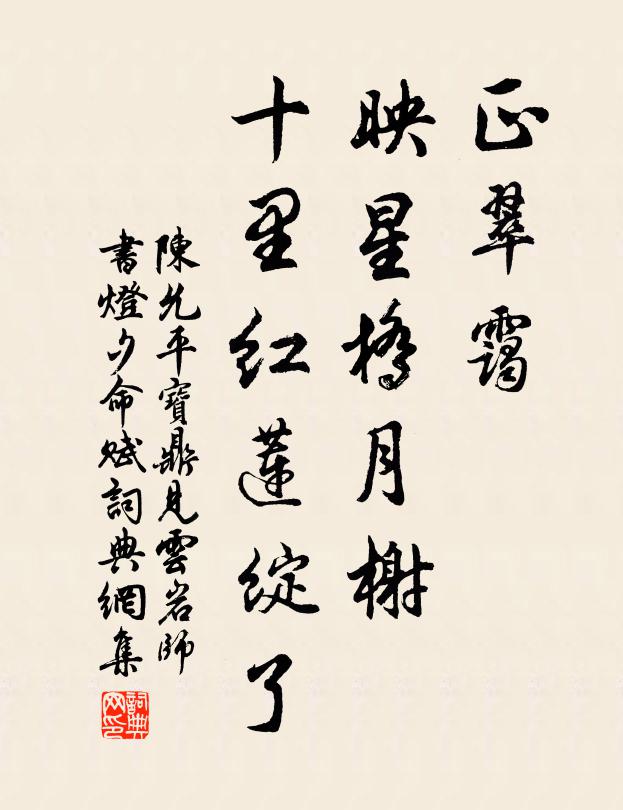 正翠靄
映星橋月榭
十里紅蓮綻了
陳允平寶鼎見雲岩師
書燈夕命賦詞典網集
詞典網印